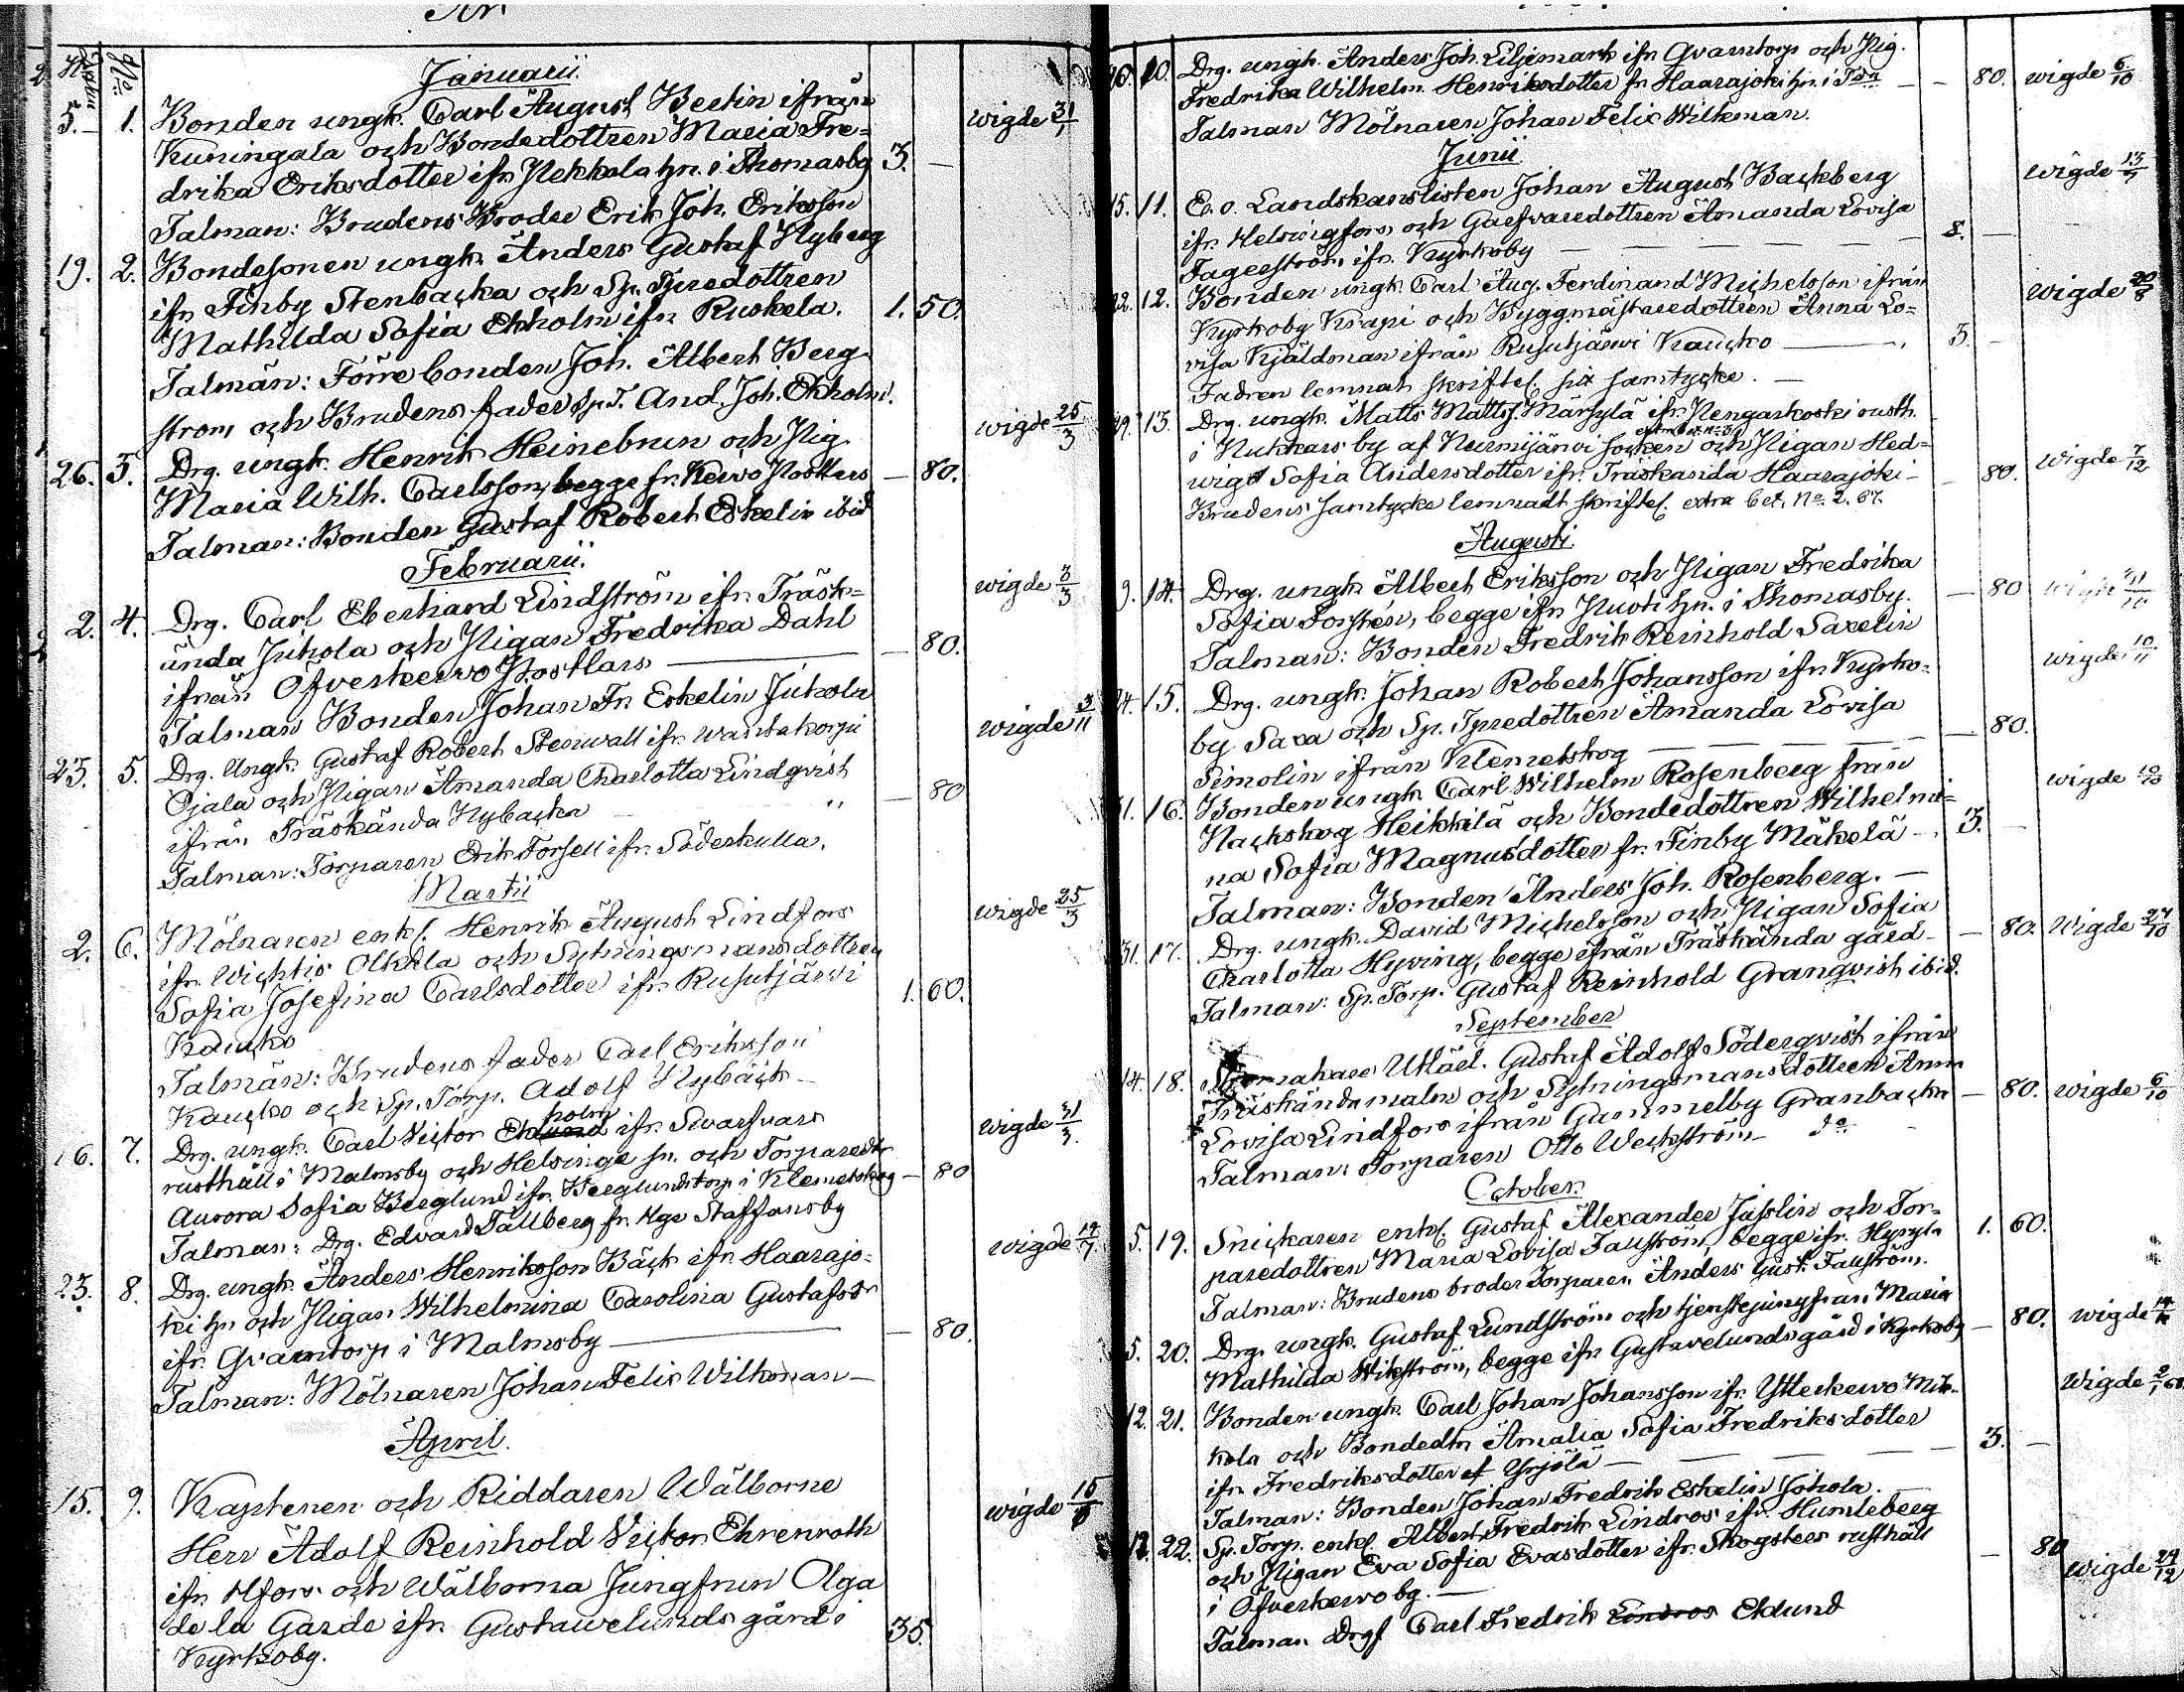 År
Januarii.
5. 1. Bonden ungk. Carl August Bertin ifrån
Kuningala och Bondedottren Maria Fre=
drika Eriksdotter ifr. Nekkala hn. i Thomasby 3. — wigde 31/1
Talman: Brudens Broder Erik Joh. Eriksson
19. 2. Bondesonen ungk. Anders Gustaf Nyberg
ifr. Finby Stenbacka och Sp. Tpredottren
Mathilda Sofia Ekholm ifr. Ruskela. 1. 50.
Talmän: Förre bonden Joh. Albert Berg=
ström och Brudens fader Sp. T. And. Joh. Ekholm.
26. 3. Drg. ungk. Henrik Heinebrun och Pig. wigde 25/3
Maria Wilh. Carlsson, begge fr. Kervo — 80.
Talman: Bonden Gustaf Robert Eskelin ibid
Februarii.
2. 4. Drg. Carl Eberhard Lindström ifr. Träsk= wigde 3/3
ända Juhola och Pigan Fredrika Dahl
ifrån Öfverkervo — 80.
Talman Bonden Johan Fr. Eskelin Juhola
23. 5. Drg. Ungk. Gustaf Robert Stenwall ifr. Wantakorpi wigde 3/11
Ojala och Pigan Amanda Charlotta Lindqvist
ifrån Träskända Nybacka — 80
Talman: Torparen Erik Forsell ifr. Söderkulla.
Martii
2. 6. Mölnaren enkl. Henrik August Lindfors wigde 25/3
ifr. Wichtis Olkala och Sytningsmansdottren
Sofia Josefina Carlsdotter ifr. Rusutjärvi
Kaucko 1. 60.
Talmän: Brudens fader Carl Eriksson
Kaucko och Sp. Torp. Adolf Nybäck —
16. 7. Drg. ungk. Carl Victor Ekholm ifr. Swarfvars wigde 31/3.
rusthåll i Malmsby och Helsinge sn. och Torparedtr
Aurora Sofia Berglund ifr. Berglundstorp i Klemetskog — 80
Talman: Drg. Edvard Tallberg fr. Hgs Staffansby
23. 8. Drg. ungk. Anders Henriksson Bäck ifr. Haarajo=
ki hn. och Pigan Wilhelmina Carolina Gustafsdr
ifr. Qvarntorp i Malmsby — 80.
Talman: Mölnaren Johan Felix Wilkman —
April.
15. 9. Kaptenen och Riddaren Wälborne
Herr Adolf Reinhold Victor Ehrenroth
ifr. Hfors och Wälborna Jungfrun Olga
de la Garde ifr. Gustawelunds gård i
Kyrkoby. 35.
10. Drg. ungk. Anders Joh. Liljemark ifr. Qvarntorp och Pig.
Fredrika Wilhelm. Henriksdotter fr. Haarajoki hn. i — 80. wigde 6/10
Talman Mölnaren Johan Felix Wilkman.
Junii
15. 11. E. o. Landskanslisten Johan August Backberg
ifr. Helsingfors och Garfvaredottren Amanda Lovisa
Fagerström ifr. Kyrkoby — 8. —
22. 12. Bonden ungk. Carl Aug. Ferdinand Michelsson ifrån
Kyrkoby Krapi och Byggmästaredottren Anna Lo=
visa Kjäldman ifrån Rusutjärvi Kaucko — 3. —
Fadren lemnat skriftel. sitt samtycke. —
29. 13. Drg. ungk. Matts Matts. Märkylä ifr. Nengarkoski rusth.
i Nuhkars by af Nurmijärvi socken och Pigan Hed=
wig Sofia Andersdotter ifr. Träskända Haarajoki — 80. wigde 7/12
Brudens samtycke lemnadt skriftel. extra bet. No. 2. 67.
Augusti.
9. 14. Drg. ungk. Albert Eriksson och Pigan Fredrika
Sofia Forstén, begge ifr. hn. i Thomasby. — 80
Talman: Bonden Fredrik Reinhold Saxelin
24. 15. Drg. ungk. Johan Robert Johansson ifr. Kyrko= wigde 10/11
by Saxa och Sp. Tpredottren Amanda Lovisa
Simolin ifrån Klemetskog — 80.
31. 16. Bonden ungk. Carl Wilhelm Rosenberg från
Nackskog Heikkilä och Bondedottren Wilhelmi=
na Sofia Magnusdotter fr. Finby Mäkelä — 3. —
Talman: Bonden Anders Joh. Rosenberg. —
31. 17. Drg. ungk. David Michelsson och Pigan Sofia
Charlotta Hyving, begge ifrån Träskända gård — 80. wigde 27/10
Talman: Sp. Torp. Gustaf Reinhold Granqvist ibid.
September
14. 18. Utlärl. Gustaf Adolf Söderqvist ifrån
Träskända malm och Sytningsmansdottren Anna
Lovisa Lindfors ifrån Gammelby Granbacka — 80. wigde 6/10
Talman: Torparen Otto Weckström do
October.
5. 19. Snickaren enkl. Gustaf Alexander Jusslin och Tor=
paredottren Maria Lovisa Fauström, begge ifr. Hyryla 1. 60.
Talman: Brudens broder Torparen Anders Gust. Fauström.
5. 20. Drg. ungk. Gustaf Lundström och tjenstejungfrun Maria
Mathilda Wikström, begge ifr. Gustavelunds gård i Kyrkoby — 80. wigde
12. 21. Bonden ungk. Carl Johan Johansson ifr. Ytterkervo Mik=
kola och Bondedtr. Amalia Sofia Fredriksdotter
ifr. Fredriksdotter af Yrjölä — 3. —
Talman: Bonden Johan Fredrik Eskelin Johola.
12. 22. Sp. Torp. enkl. Albert Fredrik Lindros ifr. Humleberg
och Pigan Eva Sofia Evasdotter ifr. Skogsters rusthåll
i Öfverkervo by. — 80 wigde 29/12
Talman Drg Carl Fredrik Lindros Eklund